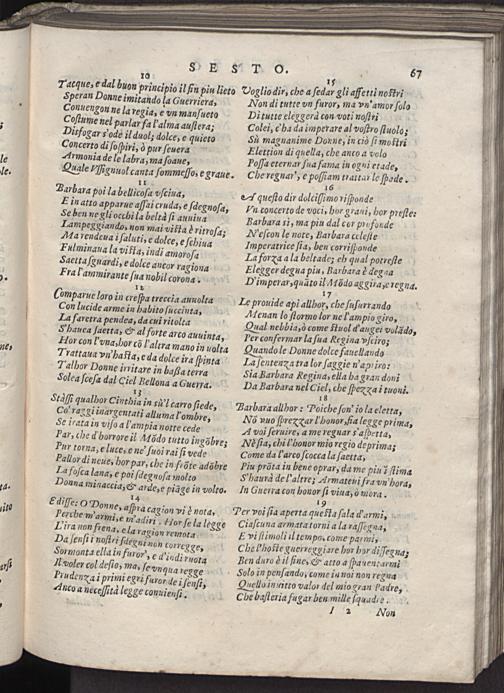 SESTO.
67
10
Tacque, e dal buon principio il fin piu lieto
Speran Donne imitando la Guerriera,
Conuengon ne la regia, e vn mansueto
Costume nel parlar fa l'alma austera;
Disfogar s'ode il duol; dolce, e quieto
Concerto di sospiri, ò pur seuera
Armonia de le labra; ma soaue,
Quale Vssignuol canta sommesso, e graue.
11
Barbara poi la bellicosa vsciua,
E in atto apparue assai cruda, e sdegnosa,
Se ben ne gli occhi la beltà si auuiua
Lampeggiando, non mai vista è ritrosa;
Ma rendeua i saluti, e dolce, e schiua
Fulminaua la vista, indi amorosa
Saetta sguardi, e dolce ancor ragiona
Fra l'ammirante sua nobil corona.
12
Comparue loro in crespa treccia auuolta
Con lucide arme in habito succinta,
La faretra pendea, da cui riuolta
S'hauea saetta, & al forte arco auuinta,
Hor con l'vna, hor cō l'altra mano in volta
Trattaua vn'hasta, e da dolce ira spinta
Talhor Donne irritare in bassa terra
Solea scesa dal Ciel Bellona a Guerra.
13
Stassi qualhor Cinthia in sù'l carro siede,
Co' raggi inargentati alluma l'ombre,
Se irata in viso a l'ampia notte cede
Par, che d'horrore il Mōdo tutto ingōbre;
Pur torna, e luce, e ne' suoi rai si vede
Pallor di neue, hor par, che in frōte adōbre
La fosca lana, e poi sdegnosa molto
Donna minaccia, & arde, e piāge in volto.
14
E disse: O Donne, aspra cagion vi è nota,
Perche m'armi, e m'adiri. Hor se la legge
L'ira non frena, e la ragion remota
Da sensi i nostri sdegni non corregge,
Sormonta ella in furor', e d'indi ruota
Il voler col desio, ma, se vnqua regge
Prudenza i primi egri furor de i sensi,
Anco a necessità legge conuiensi.
15
Voglio dir, che a sedar gli affetti nostri
Non di tutte vn furor, ma vn'amor solo
Di tutte eleggerà con voti nostri
Colei, c'ha da imperare al vostro stuolo;
Sù magnanime Donne, in ciò si mostri
Elettion di quella, che anco a volo
Possa eternar sua fama in ogni etade,
Che regnar', e possiam trattar le spade.
16
A questo dir dolcissimo risponde
Vn concerto de voci, hor graui, hor preste:
Barbara sì, ma piu dal cor profonde
N'escon le note, Barbara celeste
Imperatrice sia, ben corrisponde
La forza a la beltade; eh qual potreste
Elegger degna piu, Barbara è degna
D'imperar, quāto il Mōdo aggira, e regna.
17
Le prouide api allhor, che susurrando
Menan lo stormo lor ne l'ampio giro,
Qual nebbia, ò come stuol d'augei volādo,
Per confermar la sua Regina vsciro;
Quando le Donne dolce fauellando
La sentenza tra lor saggie n'apriro:
Sia Barbara Regina, ella ha gran doni
Da Barbara nel Ciel, che spezza i tuoni.
18
Barbara allhor: Poiche son' io la eletta,
Nò vuò sprezzar l'honor, sia legge prima,
A voi seruire, a me regnar s'aspetta,
Nè sia, chi l'honor mio regio deprima;
Come da l'arco scocca la saetta,
Piu prōta in bene oprar, da me piu' si stima
S'haurà de l'altre; Armateui fra vn'hora,
In Guerra con honor si viua, ò mora.
19
Per voi sia aperta questa sala d'armi,
Ciascuna armata torni a la rassegna,
E vi stimoli il tempo, come parmi,
Che l'hoste guerreggiare hor hor dissegna;
Ben duro è il fine, & atto a spauentarmi
Solo in pensando, come in noi non regna
Quello inuitto valor del mio gran Padre,
Che basteria fugar ben mille squadre.
I 2 Non